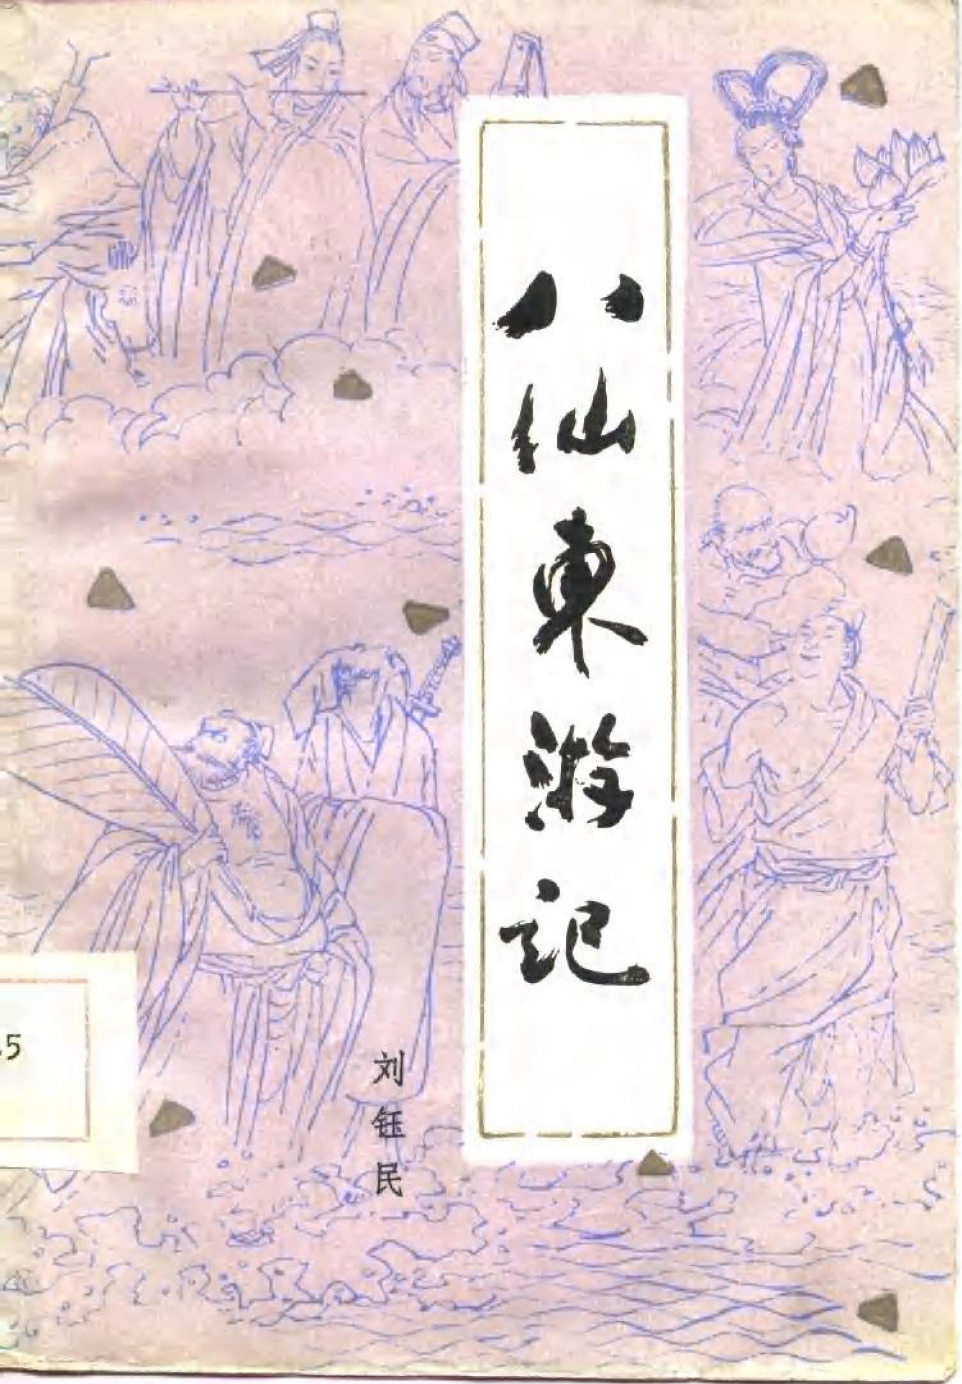 八仙東游记
刘钰民
.5